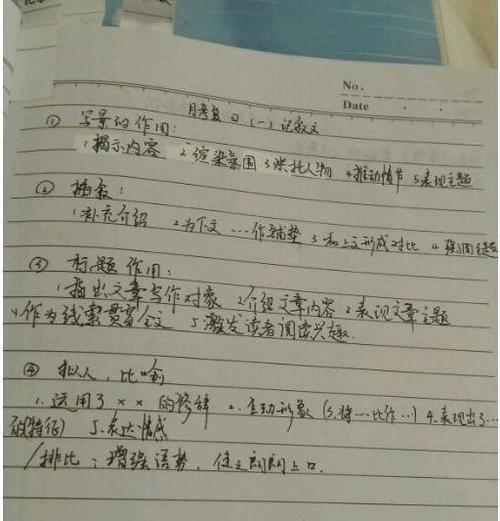 No.
Date
月考复习(一)记叙文
① 写景的作用:
1揭示内容 2渲染氛围 3烘托人物 4推动情节 5表现主题
② 插叙:
1补充介绍 2为下文…作铺垫 3和上文形成对比 4强调
③ 标题作用:
1指出文章写作对象 2介绍文章内容 3表现文章主题
4.作为线索贯穿全文 5激发读者阅读兴趣.
④ 拟人,比喻
1.运用了××的修辞 2.生动形象(3.将…比作…) 4.表现出了…
的特征) 5.表达情感
/排比:增强语势,使之朗朗上口.